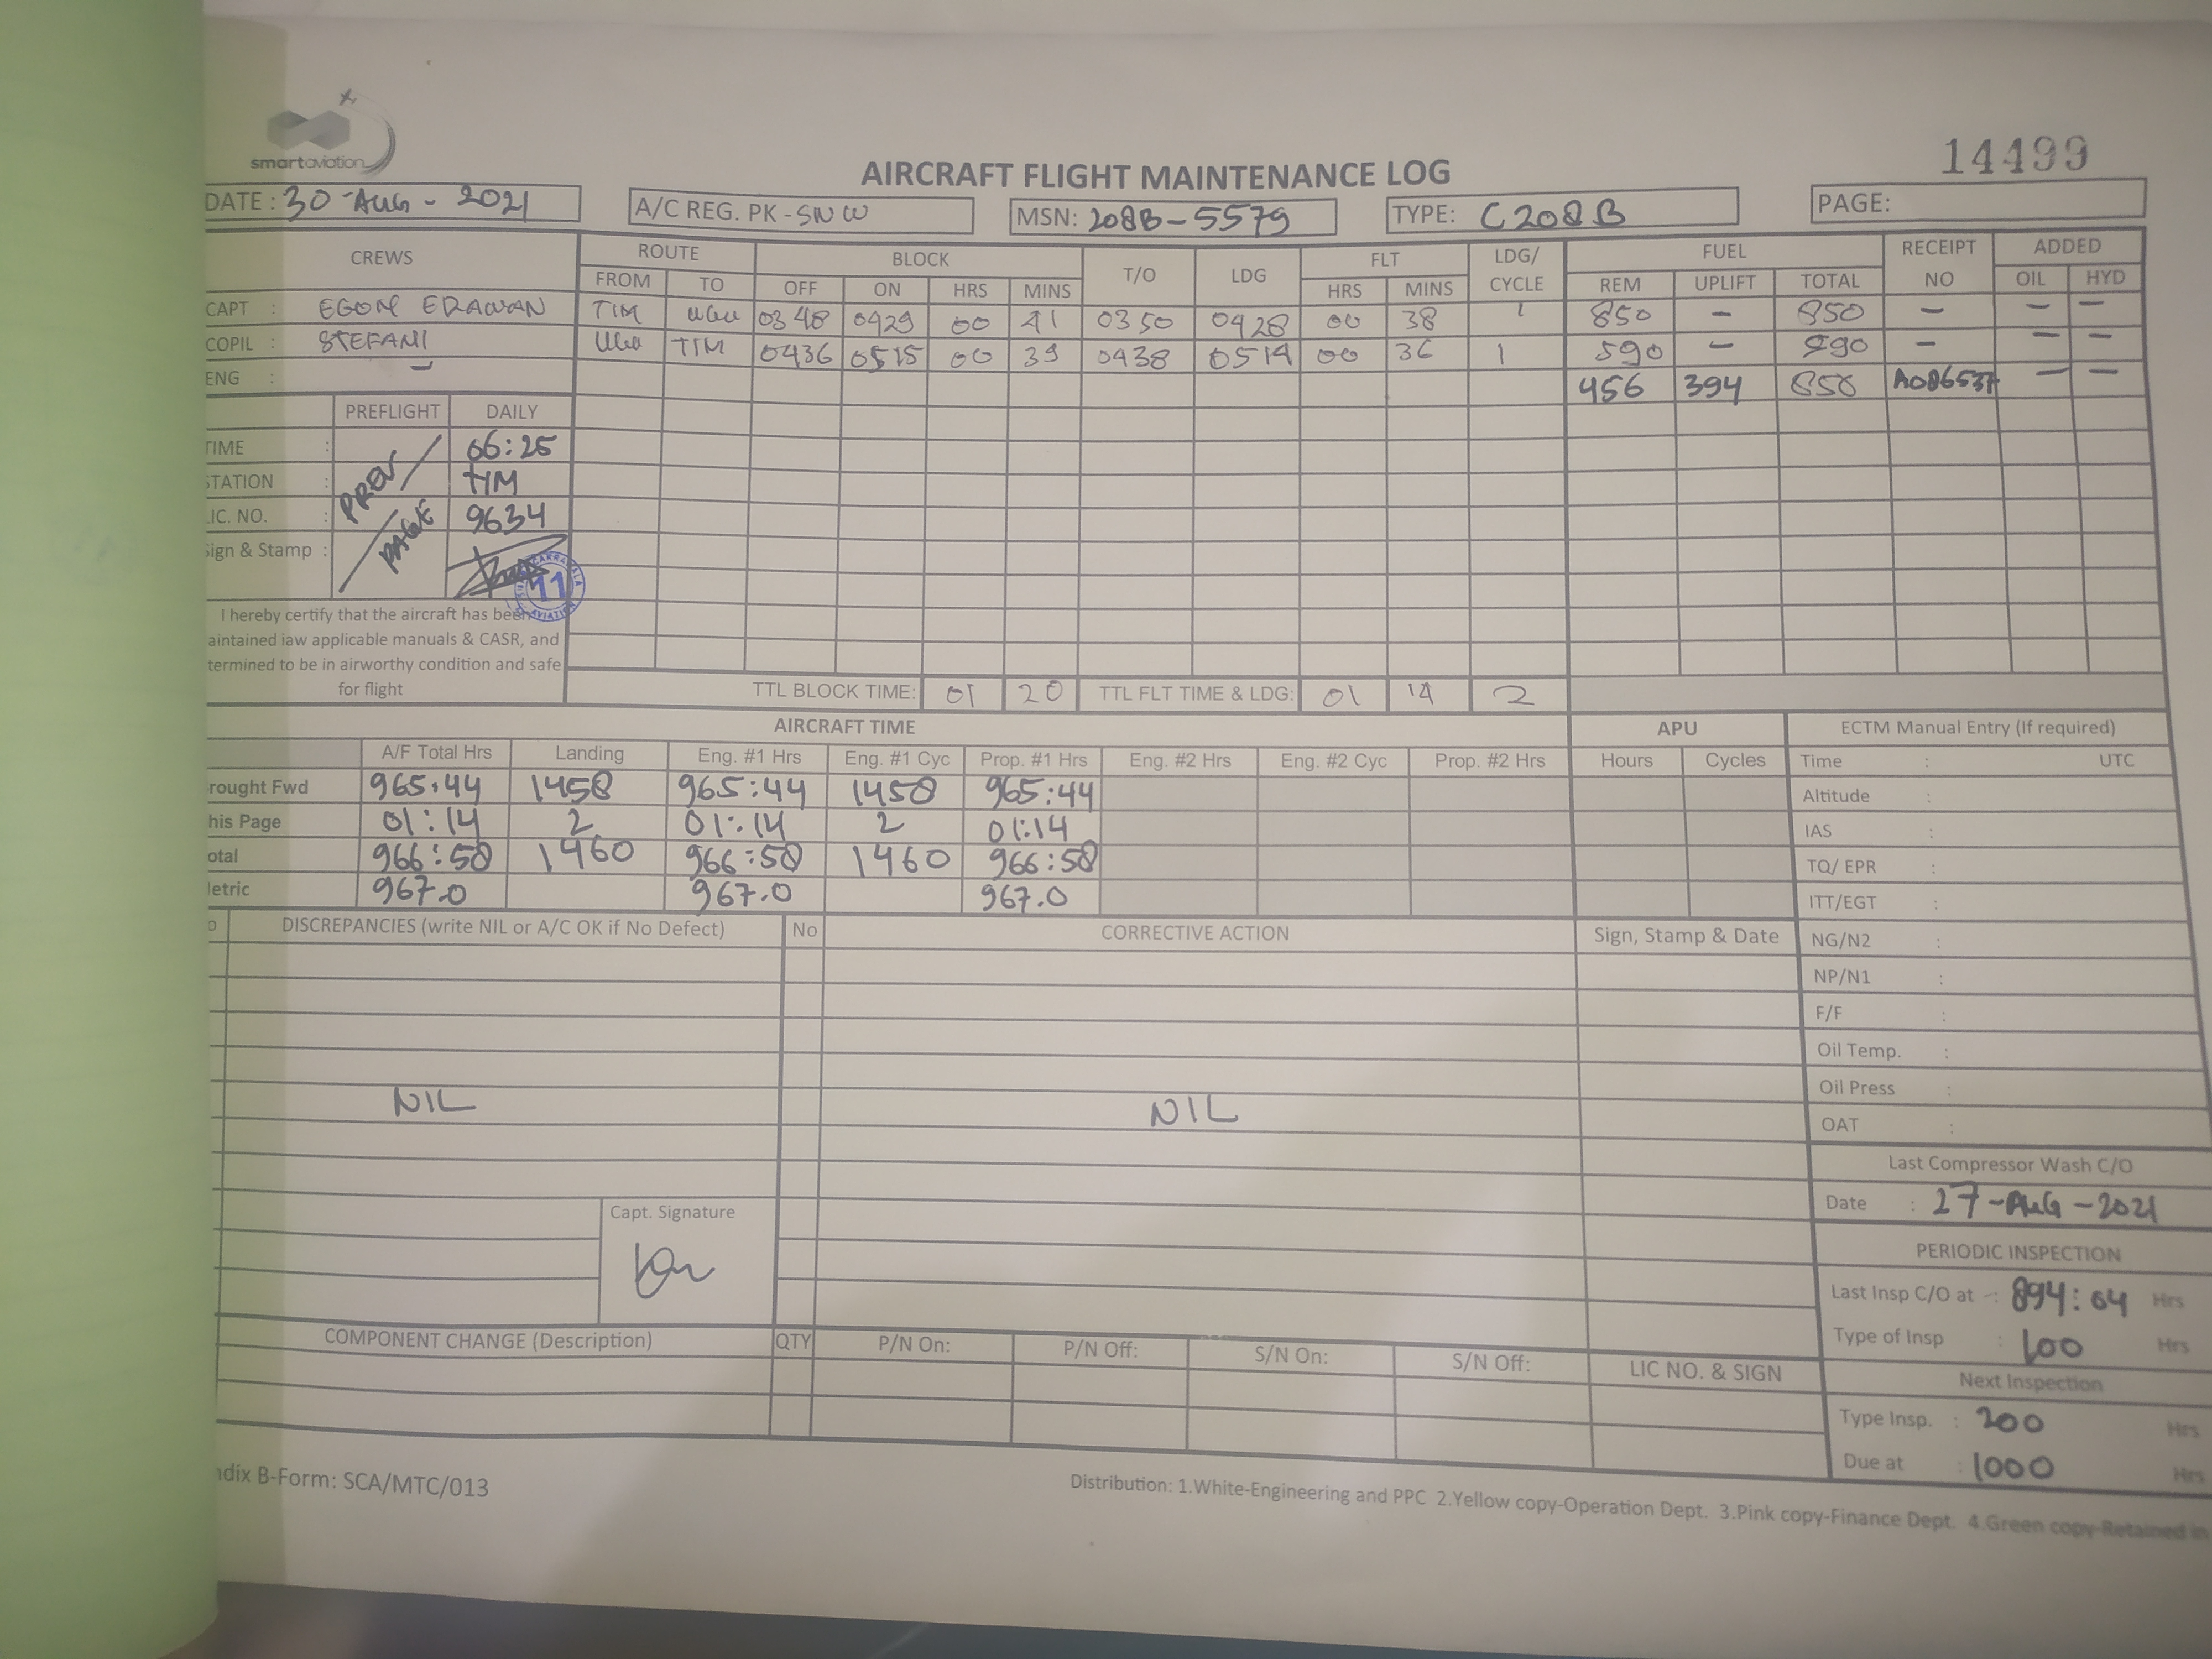 smartaviation
14499
AIRCRAFT FLIGHT MAINTENANCE LOG
DATE : 30-AUG-2021
A/C REG. PK-SNW
MSN: 208B-5579
TYPE: C208B
PAGE:
CREWS ROUTE BLOCK T/O LDG FLT LDG/ CYCLE FUEL RECEIPT NO ADDED
FROM TO OFF ON HRS MINS HRS MINS REM UPLIFT TOTAL OIL HYD
CAPT : EGON ERAWAN TIM 0348 0429 00 41 0350 0428 00 38 1 850 - 850 - - -
COPIL : STEFANI TIM 0436 0515 00 39 0438 0514 00 36 1 590 - 590 - - -
ENG : - 456 394 850 A086537 - -
PREFLIGHT DAILY
TIME : 06:25
STATION : TIM
LIC. NO. : 9634
Sign & Stamp :
PREV / PAGE
11
AVIATION
I hereby certify that the aircraft has been
aintained iaw applicable manuals & CASR, and
termined to be in airworthy condition and safe
for flight
TTL BLOCK TIME: 01 20 TTL FLT TIME & LDG: 01 14 2
AIRCRAFT TIME APU ECTM Manual Entry (If required)
A/F Total Hrs Landing Eng. #1 Hrs Eng. #1 Cyc Prop. #1 Hrs Eng. #2 Hrs Eng. #2 Cyc Prop. #2 Hrs Hours Cycles Time : UTC
rought Fwd 965:44 1458 965:44 1458 965:44
his Page 01:14 2 01:14 2 01:14
otal 966:58 1460 966:58 1460 966:58
letric 967.0 967.0 967.0
Altitude :
IAS :
TQ/ EPR :
ITT/EGT :
NG/N2 :
NP/N1 :
F/F :
Oil Temp. :
Oil Press :
OAT :
o DISCREPANCIES (write NIL or A/C OK if No Defect) No CORRECTIVE ACTION Sign, Stamp & Date
NIL NIL
Capt. Signature
Last Compressor Wash C/O
Date : 27-AUG-2021
PERIODIC INSPECTION
Last Insp C/O at : 894:04 Hrs
Type of Insp : 100 Hrs
Next Inspection
Type Insp. : 200 Hrs
Due at : 1000 Hrs
COMPONENT CHANGE (Description) QTY P/N On: P/N Off: S/N On: S/N Off: LIC NO. & SIGN
ndix B-Form: SCA/MTC/013
Distribution: 1.White-Engineering and PPC 2.Yellow copy-Operation Dept. 3.Pink copy-Finance Dept. 4.Green copy-Retained in